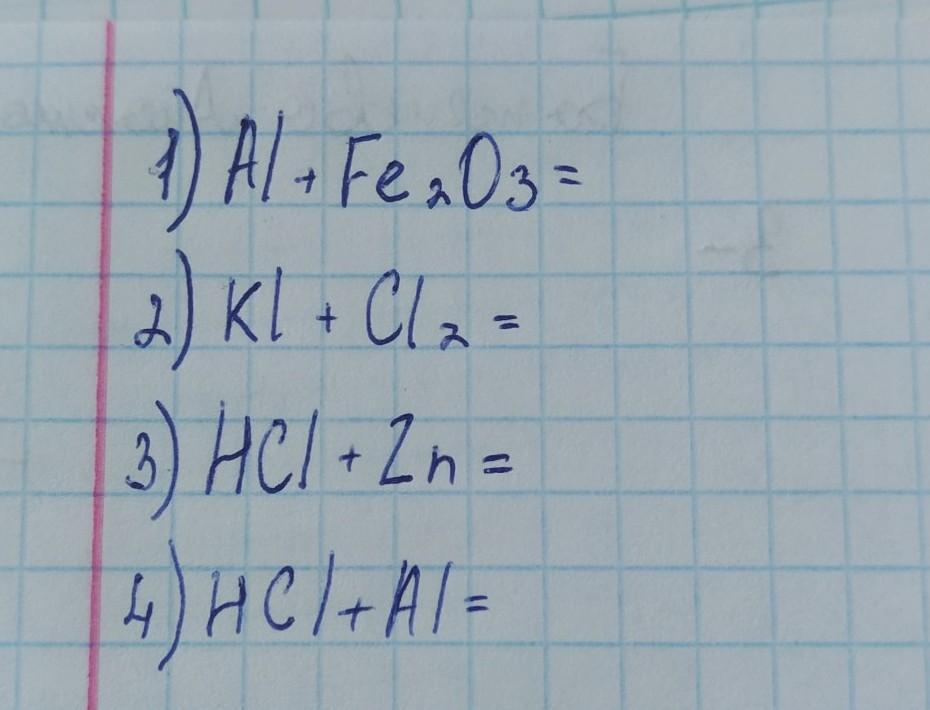 1) Al + Fe₂O₃ =
2) Kl + Cl₂ =
3) HCl + Zn =
4) HCl + Al =